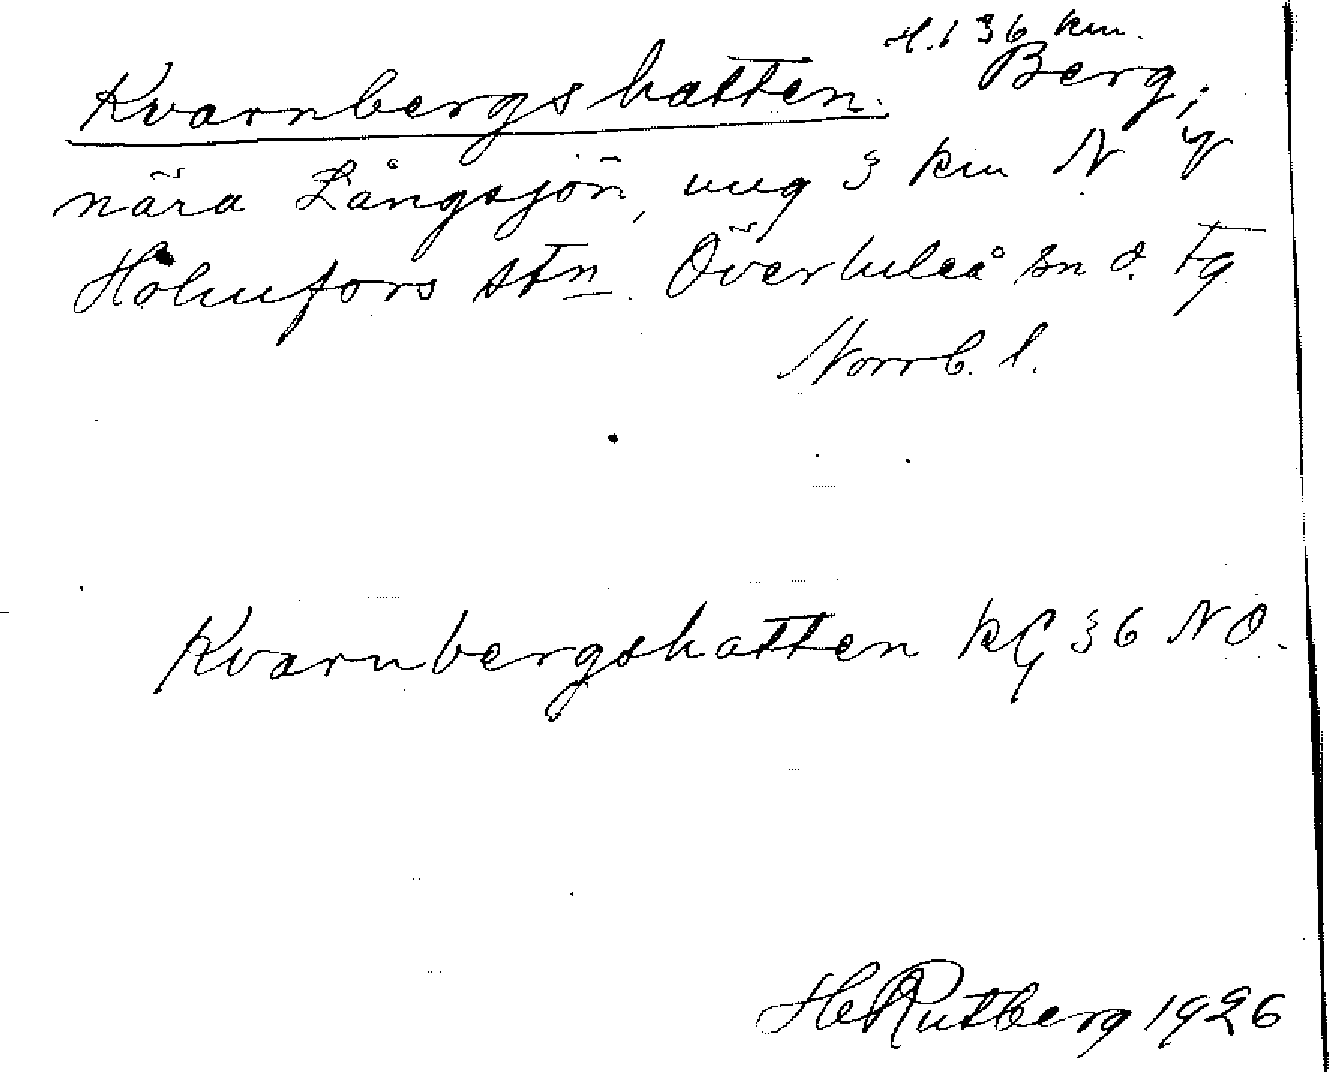 H.l 36 km.
Kvarnbergshatten. Berg,
nära Långsjön, ung 3 km N
Holmfors stn. Överluleå sn o. tg
Norrb. l.
Kvarnbergshatten kG 36 NO.
HeRutberg 1926